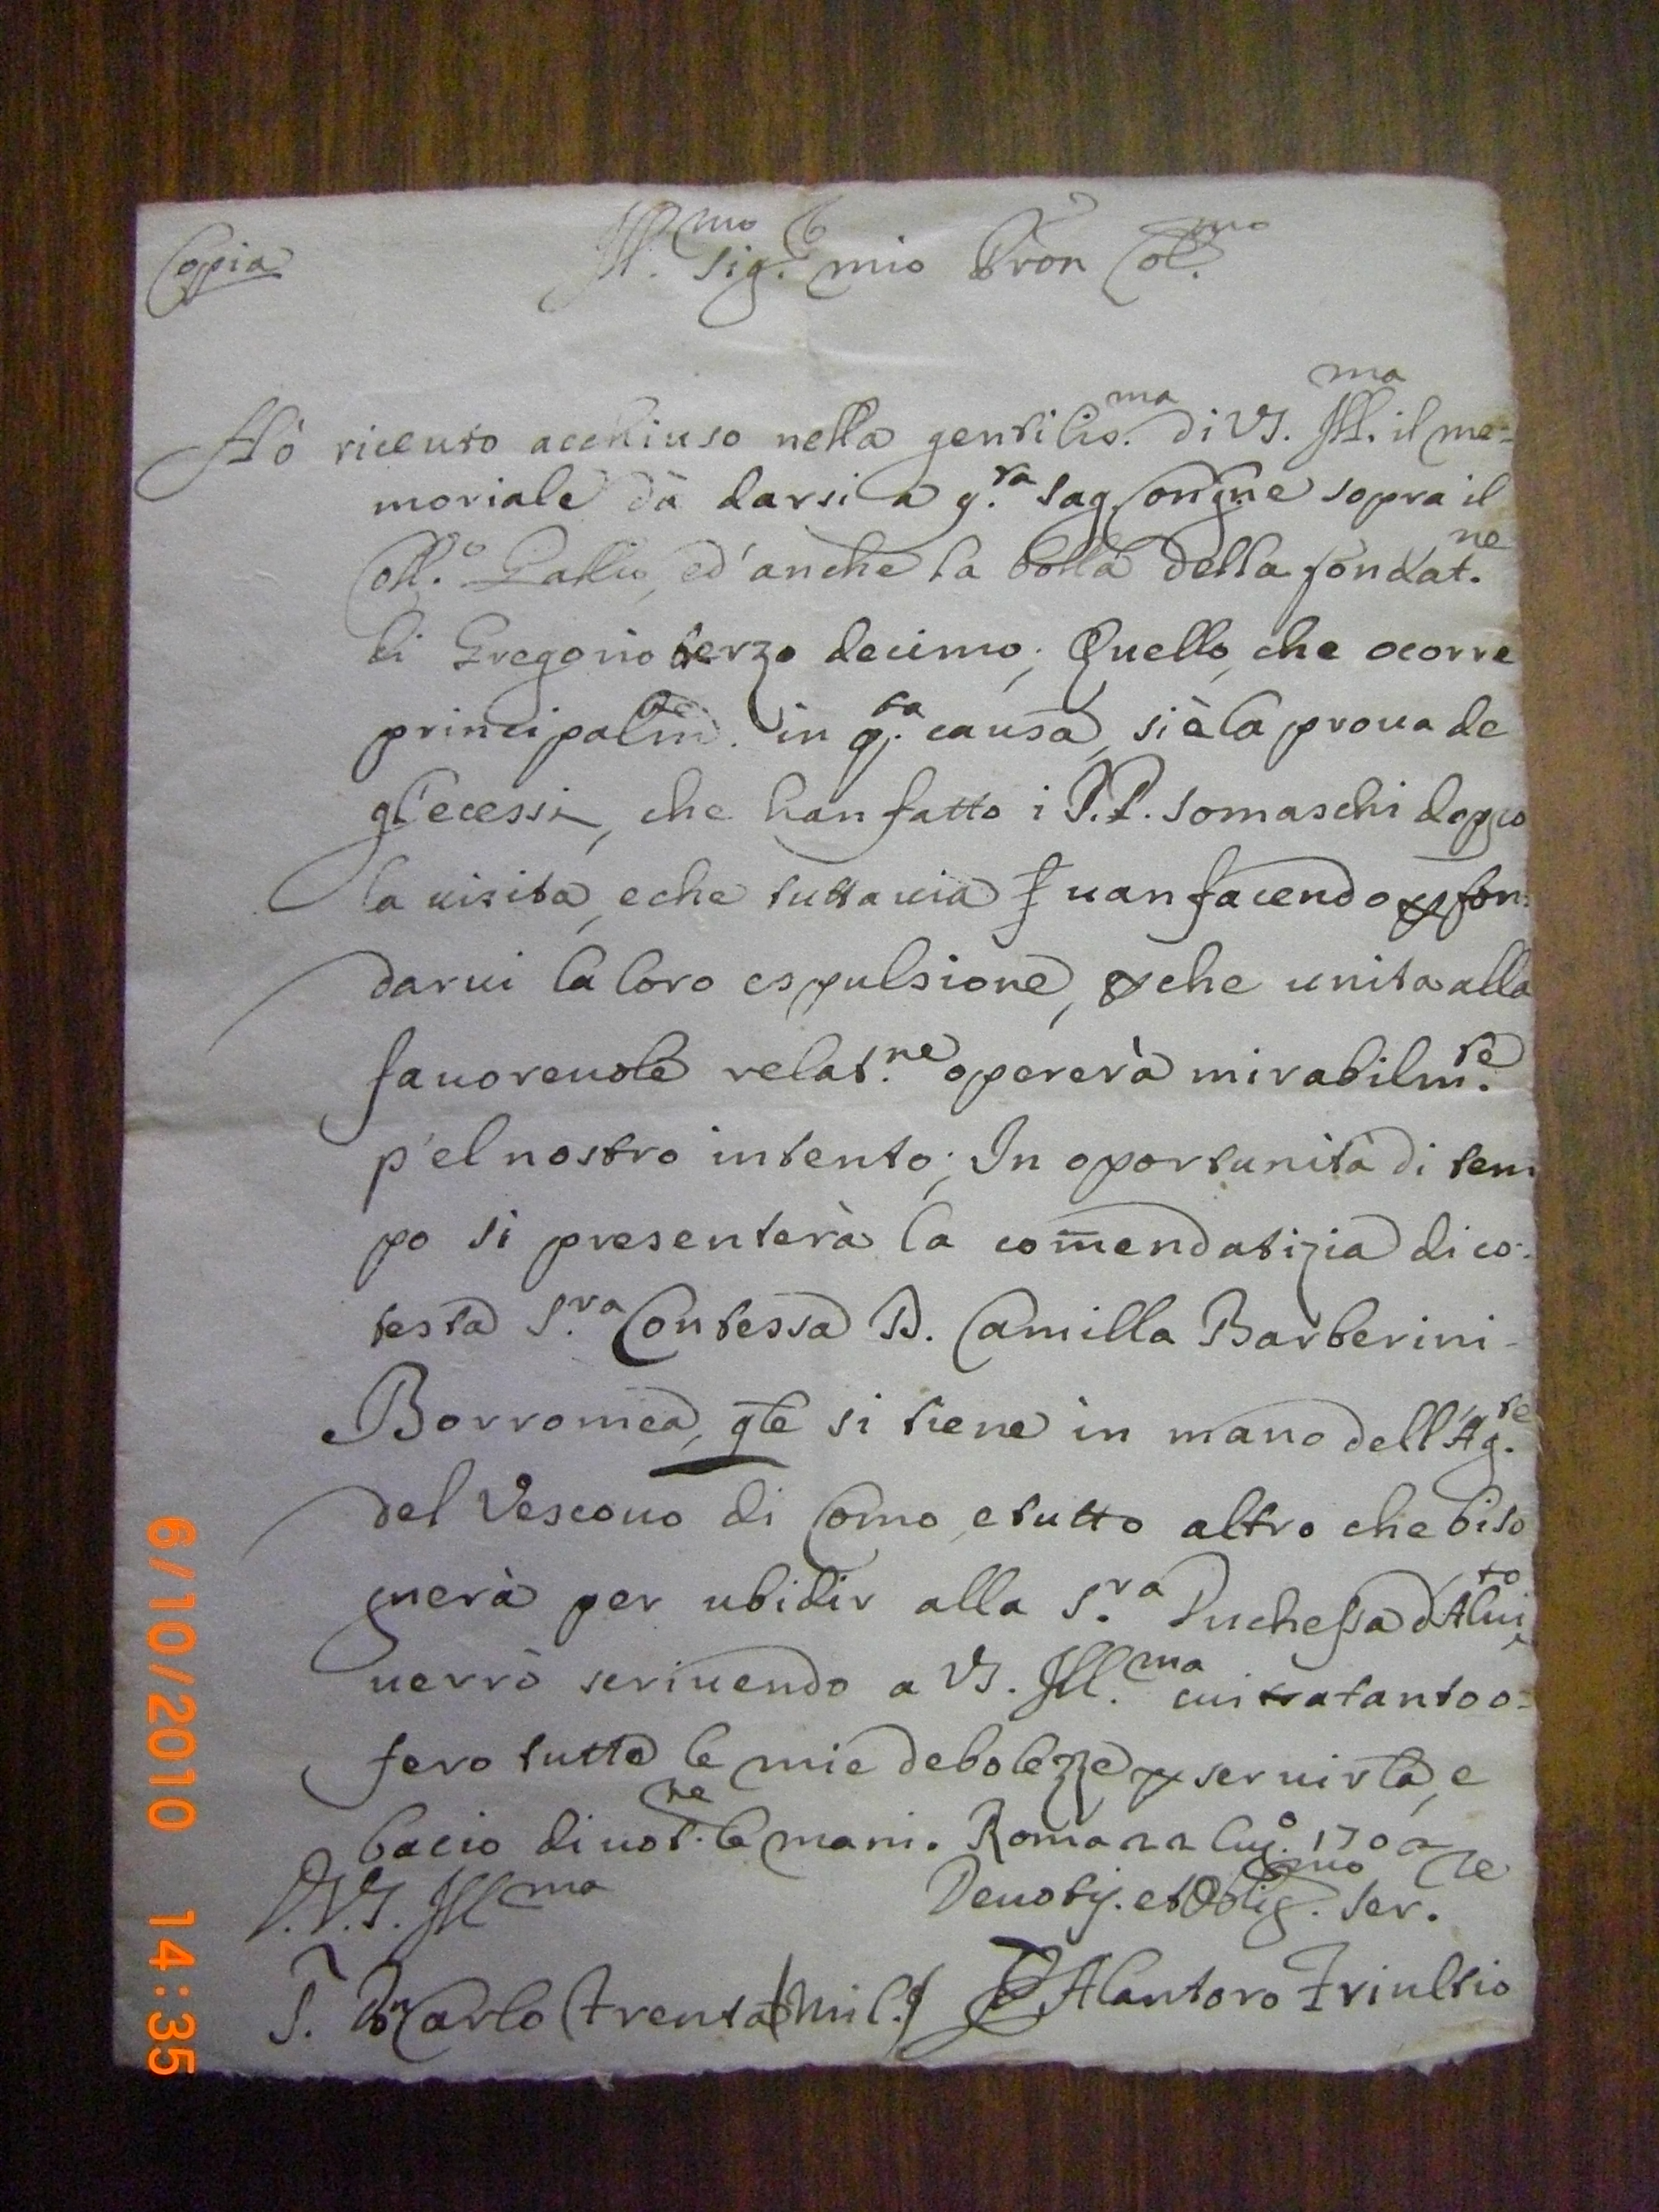 Copia
Ill.mo Sig.re mio Pron Col.mo
Hò riceuto acchiuso nella gentilis.ma di VS. Ill.ma il me-
moriale dà darsi a q.ta Sag. Congne sopra il
Coll.o Gallio, ed'anche la bolla della fondat.ne
di Gregorio terzo decimo; Quello, che ocorre
principalm.te in q.ta causa, si è la proua de
gl'ecessi, che han fatto i P.P. Somaschi doppo
la uisita, e che tuttauia uan facendo p fon:
darui la loro espulsione, che unita alla
fauoreuole relat.ne opererà mirabilm.te
p'el nostro intento; In oportunità di tem
po si presenterà la comendatizia di co:
testa S.ra Contessa D. Camilla Barberini-
Borromea, qle si tiene in mano dell'Ag.te
del Vescouo di Como, e tutto altro che biso
gnerà per ubidir alla S.ra Duchessa d'Aluito,
uerrò scriuendo a VS. Ill.ma cui tratanto o-
fero tutte le mie debolezze p seruirla, e
bacio diuot.te le mani. Roma 22 lug.o 1702
D.V.S. Ill.ma
Deuotis. et Oblig.mo Ser.re
S. Dn Carlo Trenta Mil.
Alantoro Triultio
6/10/2010 14:35